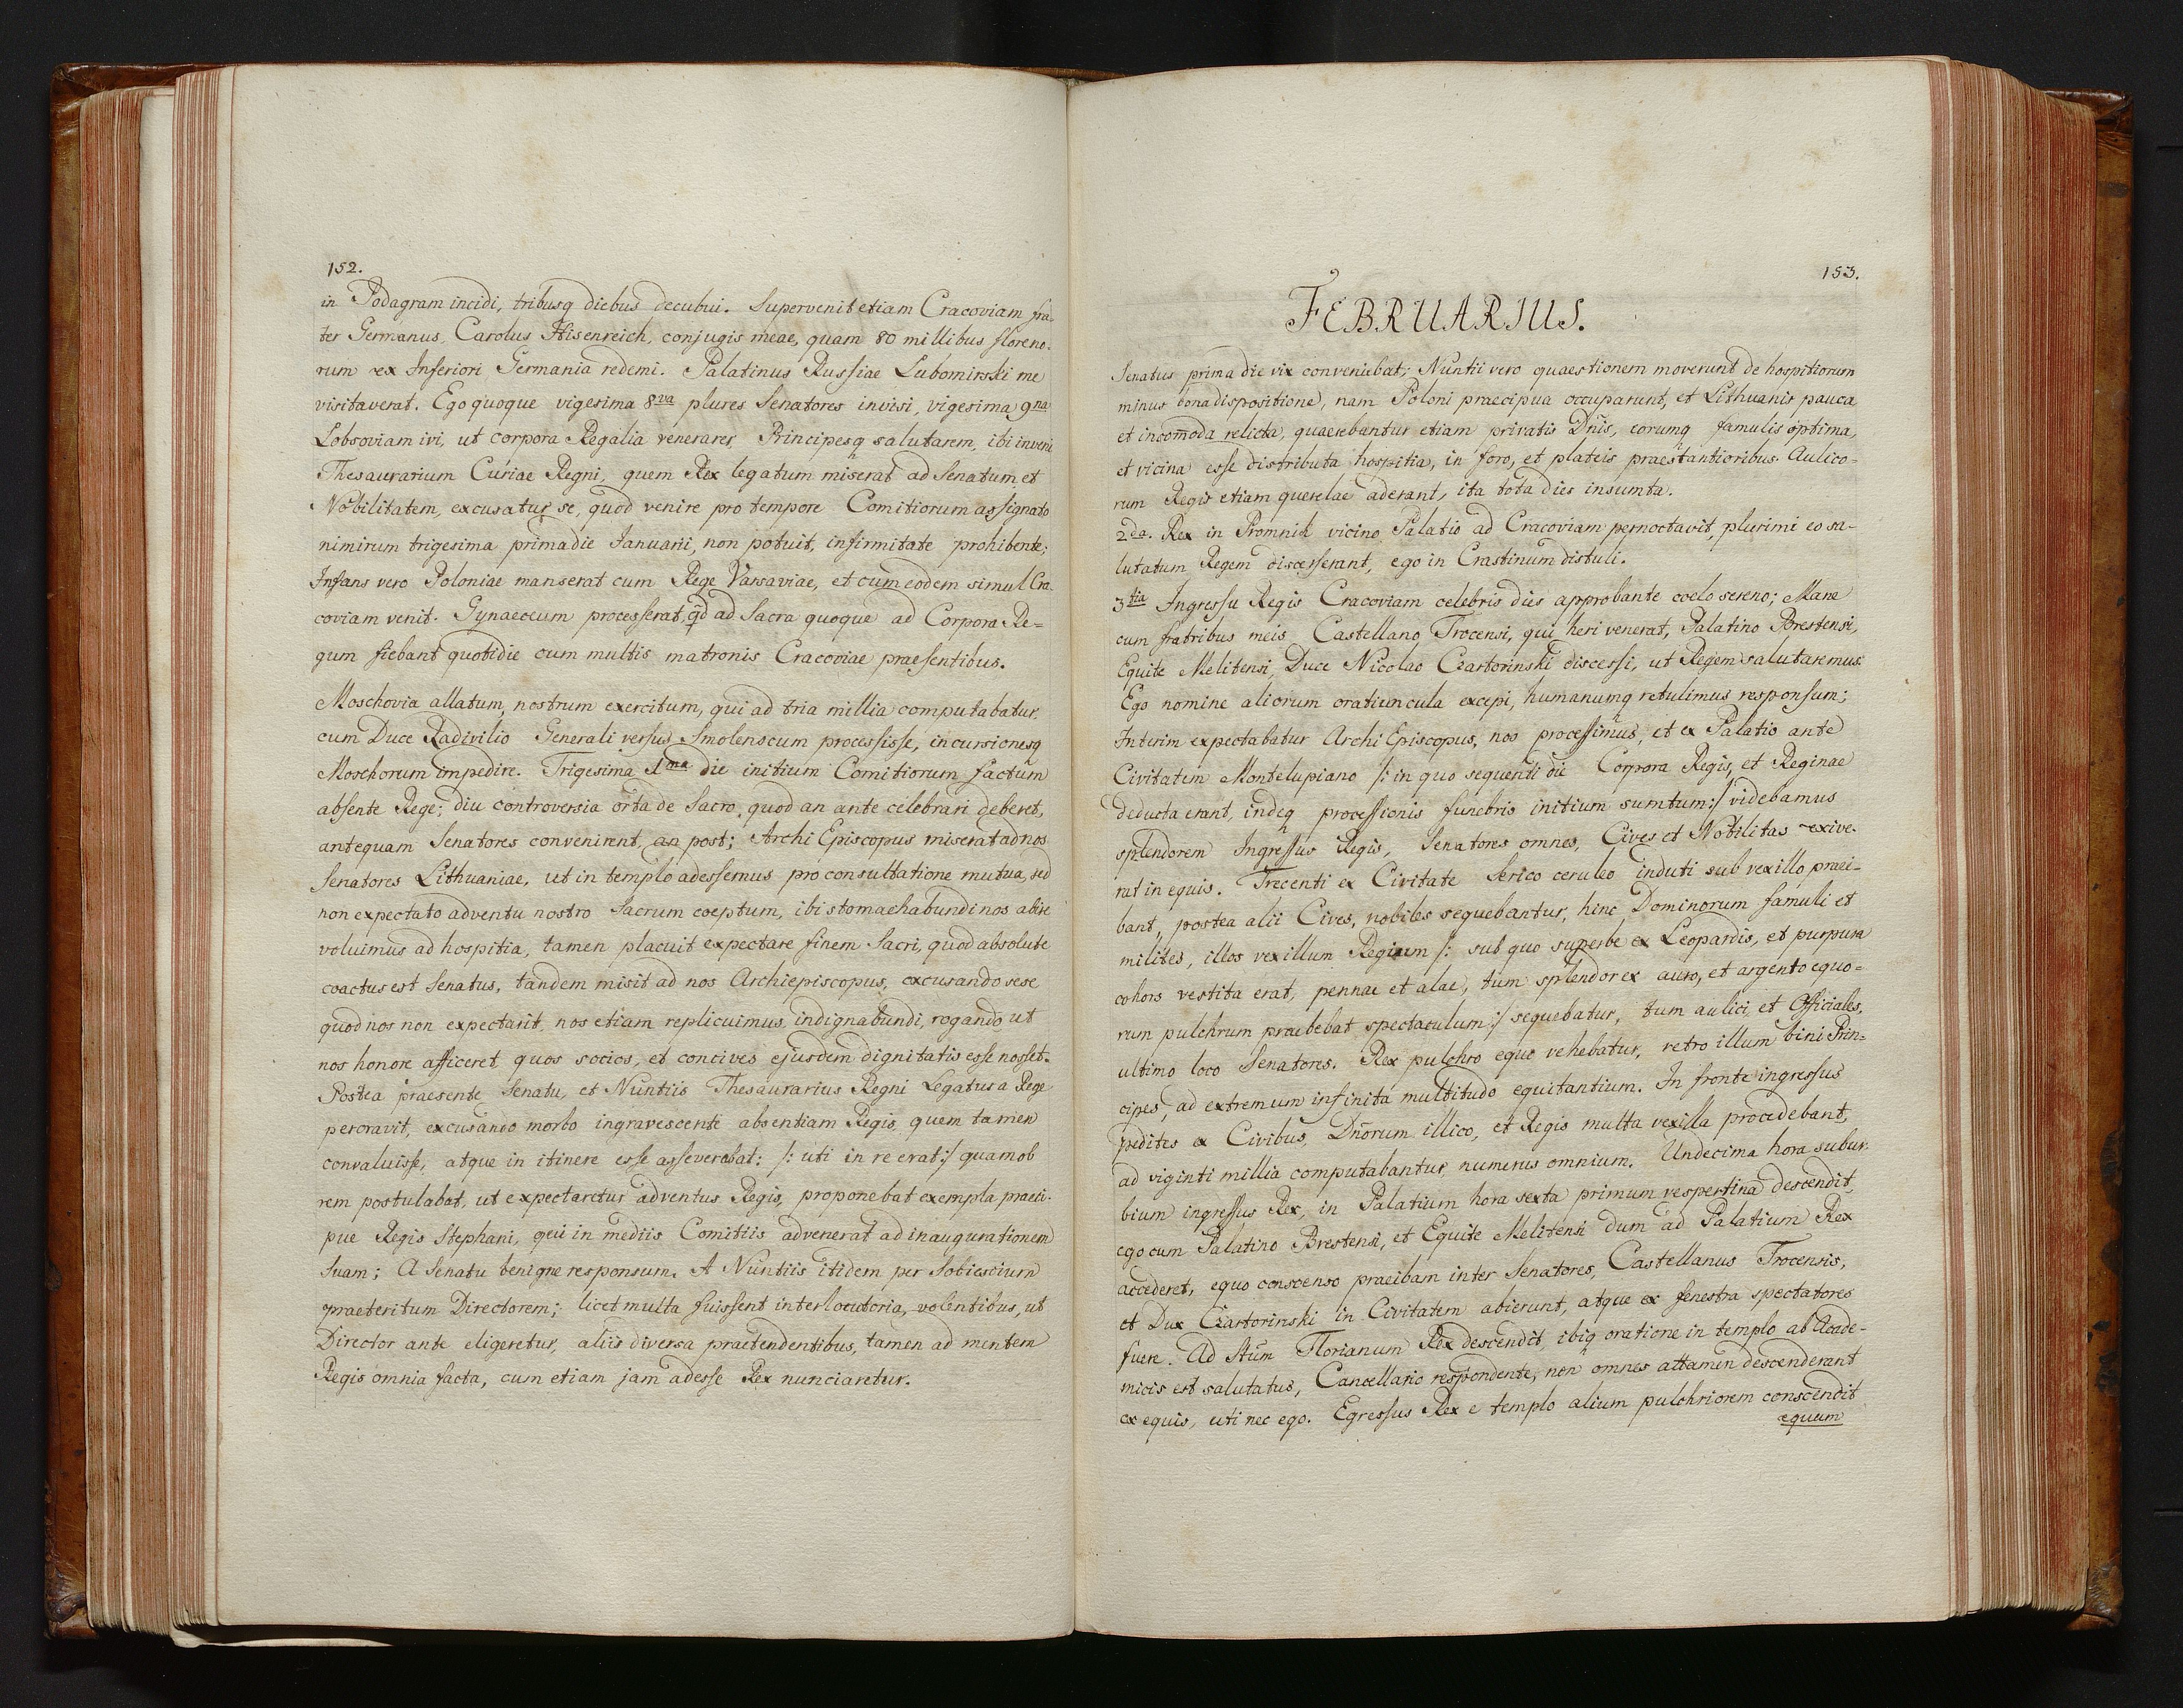 152.
in Podagram incidi, tribusq diebus decubui. Supervenit etiam Cracoviam fra-
ter Germanus, Carolus Hisenreich, conjugis meae, quam 80 millibus floreno-
rum ex Inferiori Germania redemi. Palatinus Russiae Lubomirski me
visitaverat. Ego quoque vigesima 8va plures Senatores invisi, vigesima 9na
Lobsoviam ivi, ut corpora Regalia venerarer, Principesq salutarem, ibi inveni
Thesaurarium Curiae Regni, quem Rex legatum miserat ad Senatum et
Nobilitatem, excusatur se, quod venire pro tempore Comitiorum assignato
nimirum trigesima prima die Januarii, non potuit, infirmitate prohibente;
Infans vero Poloniae manserat cum Rege Varsaviae, et cum eodem simul Cra-
coviam venit. Gynaeceum processerat, qd ad Sacra quoque ad Corpora Re=
gum fiebant quotidie cum multis matronis Cracoviae praesentibus.
Moschovia allatum, nostrum exercitum, qui ad tria millia computabatur,
cum Duce Radivilio Generali versus Smolenscum processisse, incursionesq
Moschorum impedire. Trigesima 1ma die initium Comitiorum factum
absente Rege; diu controversia orta de Sacro, quod an ante celebrari deberet,
antequam Senatores convenirent, an post; Archi Episcopus miserat ad nos
Senatores Lithuaniae, ut in templo adessemus pro consultatione mutua, sed
non expectato adventu nostro Sacrum coeptum, ibi stomachabundi nos abire
voluimus ad hospitia, tamen placuit expectare finem Sacri, quod absolute
coactus est Senatus, tandem misit ad nos Archiepiscopus, excusando sese
quod nos non expectarit, nos etiam replicuimus indignabundi, rogando ut
nos honore afficeret, quos socios, et concives ejusdem dignitatis esse nosset.
Postea praesente Senatu, et Nuntiis Thesaurarius Regni Legatus a Rege
peroravit, excusando morbo ingravescente absentiam Regis, quem tamen
convaluisse, atque in itinere esse asseverabat: /: uti in re erat :/ quam ob
rem postulabat, ut expectaretur adventus Regis, proponebat exempla praeci-
pue Regis Stephani, qui in mediis Comitiis advenerat ad inaugurationem
Suam; A Senatu benigne responsum. A Nuntiis itidem per Sobiescium
praeteritum Directorem; licet multa fuissent interlocutoria, volentibus, ut
Director ante eligeretur, aliis diversa praetendentibus, tamen ad mentem
Regis omnia facta, cum etiam jam adesse Rex nunciaretur.
153.
FEBRUARIUS.
Senatus prima die vix conveniebat; Nuntii vero quaestionem moverunt de hospitiorum
minus bona dispositione, nam Poloni praecipua occuparunt, et Lithuanis pauca
et incom̄oda relicta, quaerebantur etiam privatis Dn̄is, eorumq famulis optima,
et vicina esse distributa hospitia, in foro, et plateis praestantioribus. Aulico-
rum Regis etiam querelae aderant, ita tota dies insumta.
2da. Rex in Promnik vicino Palatio ad Cracoviam pernoctavit, plurimi eo sa-
lutatum Regem discesserant, ego in Crastinum distuli.
3tia Ingressu Regis Cracoviam celebris dies approbante coelo sereno; Mane
cum fratribus meis Castellano Trocensi, qui heri venerat, Palatino Brestensi,
Equite Melitensi, Duce Nicolao Czartorinski discessi, ut Regem salutaremus.
Ego nomine aliorum oratiuncula excepi, humanumq retulimus responsum;
Interim expectabatur Archi Episcopus, nos processimus, et ex Palatio ante
Civitatem Montelupiano /: in quo sequenti die Corpora Regis, et Reginae
deducta erant, indeq processionis funebris initium sumtum :/ videbamus
splendorem Ingressus Regis, Senatores omnes, Cives et Nobilitas exive-
rat in equis. Trecenti ex Civitate Serico ceruleo induti sub vexillo praei-
bant, postea alii Cives, nobiles sequebantur, hinc Dominorum famuli et
milites, illos vexillum Regium /: sub quo superbe ex Leopardis, et purpura
cohors vestita erat, pennae et alae, tum splendor ex auro, et argento equo=
rum pulchrum praebebat spectaculum :/ sequebatur, tum aulici, et Officiales,
ultimo loco Senatores. Rex pulchro equo vehebatur, retro illum bini Prin=
cipes, ad extremum infinita multitudo equitantium. In fronte ingressus
pedites ex Civibus, Dn̄orum illico, et Regis multa vexilla procedebant,
ad viginti millia computabantur numerus omnium. Undecima hora subur-
bium ingressus Rex, in Palatium hora sexta primum vespertina descendit,
ego cum Palatino Brestensi, et Equite Melitensi dum ad Palatium Rex
accederet, equo conscenso praeibam inter Senatores, Castellanus Trocensis,
et Dux Czartorinski in Civitatem abierunt, atque ex fenestra spectatores
fuere. Ad Stum Florianum Rex descendit, ibiq oratione in templo ab Acade-
micis est salutatus, Cancellario respondente, non omnes attamen descenderant
ex equis, uti nec ego. Egressus Rex e templo alium pulchriorem conscendit
equum